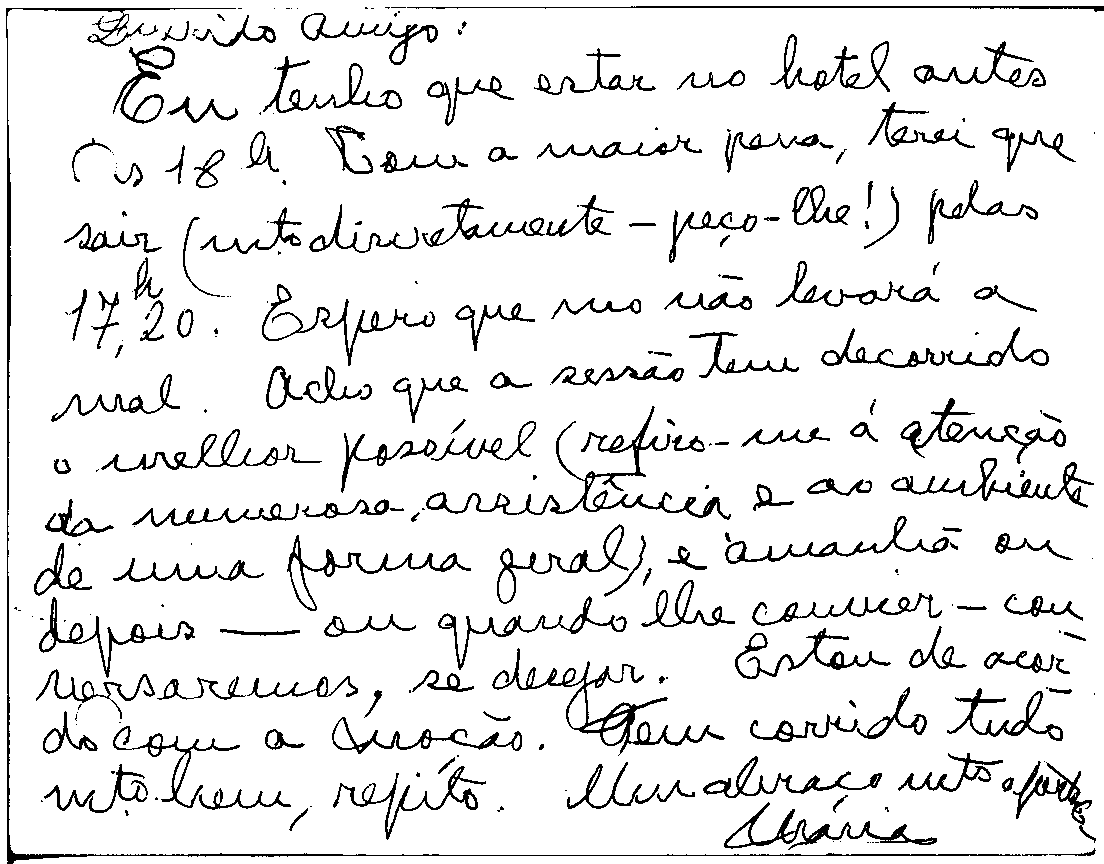 Querido Amigo:
Eu tenho que estar no hotel antes
às 18h. Com a maior pena, terei que
sair (mto discretamente - peço-lhe!) pelas
17,h20. Espero que mo não levará a
mal. Acho que a sessão tem decorrido
o melhor possível (refiro-me á atenção
da numerosa assistência e ao ambiente
de uma forma geral), e amanhã ou
depois — ou quando lhe convier - con
versaremos, se desejar. Estou de acôr
do com a moção. Tem corrido tudo
mto bem, repito. Um abraço mto
Maria